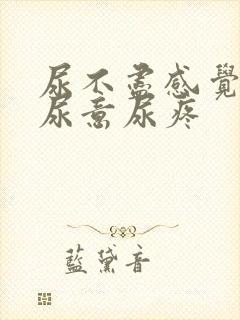 尿不盡感覺
尿意尿疼
藍黛音